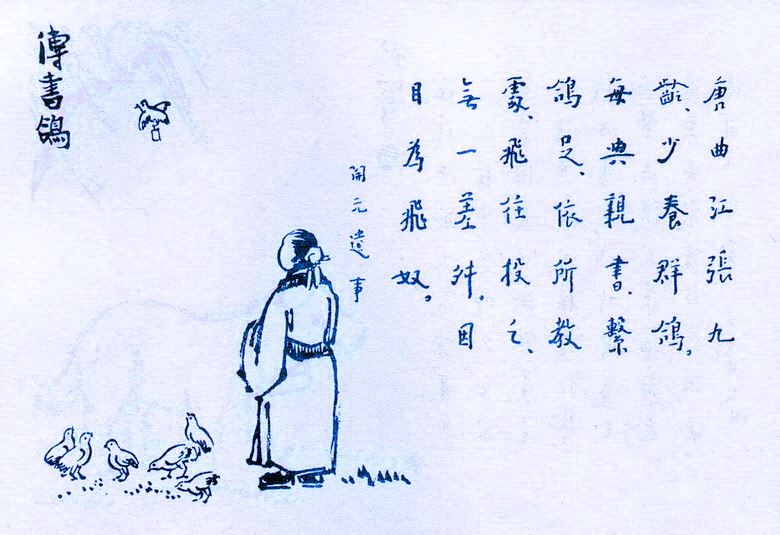 傳書鴿
唐曲江張九
齡、少養群鴿。
每與親書、繫
鴿足、依所教
處、飛往投之、
無一差舛。因
目為飛奴。
開元遺事